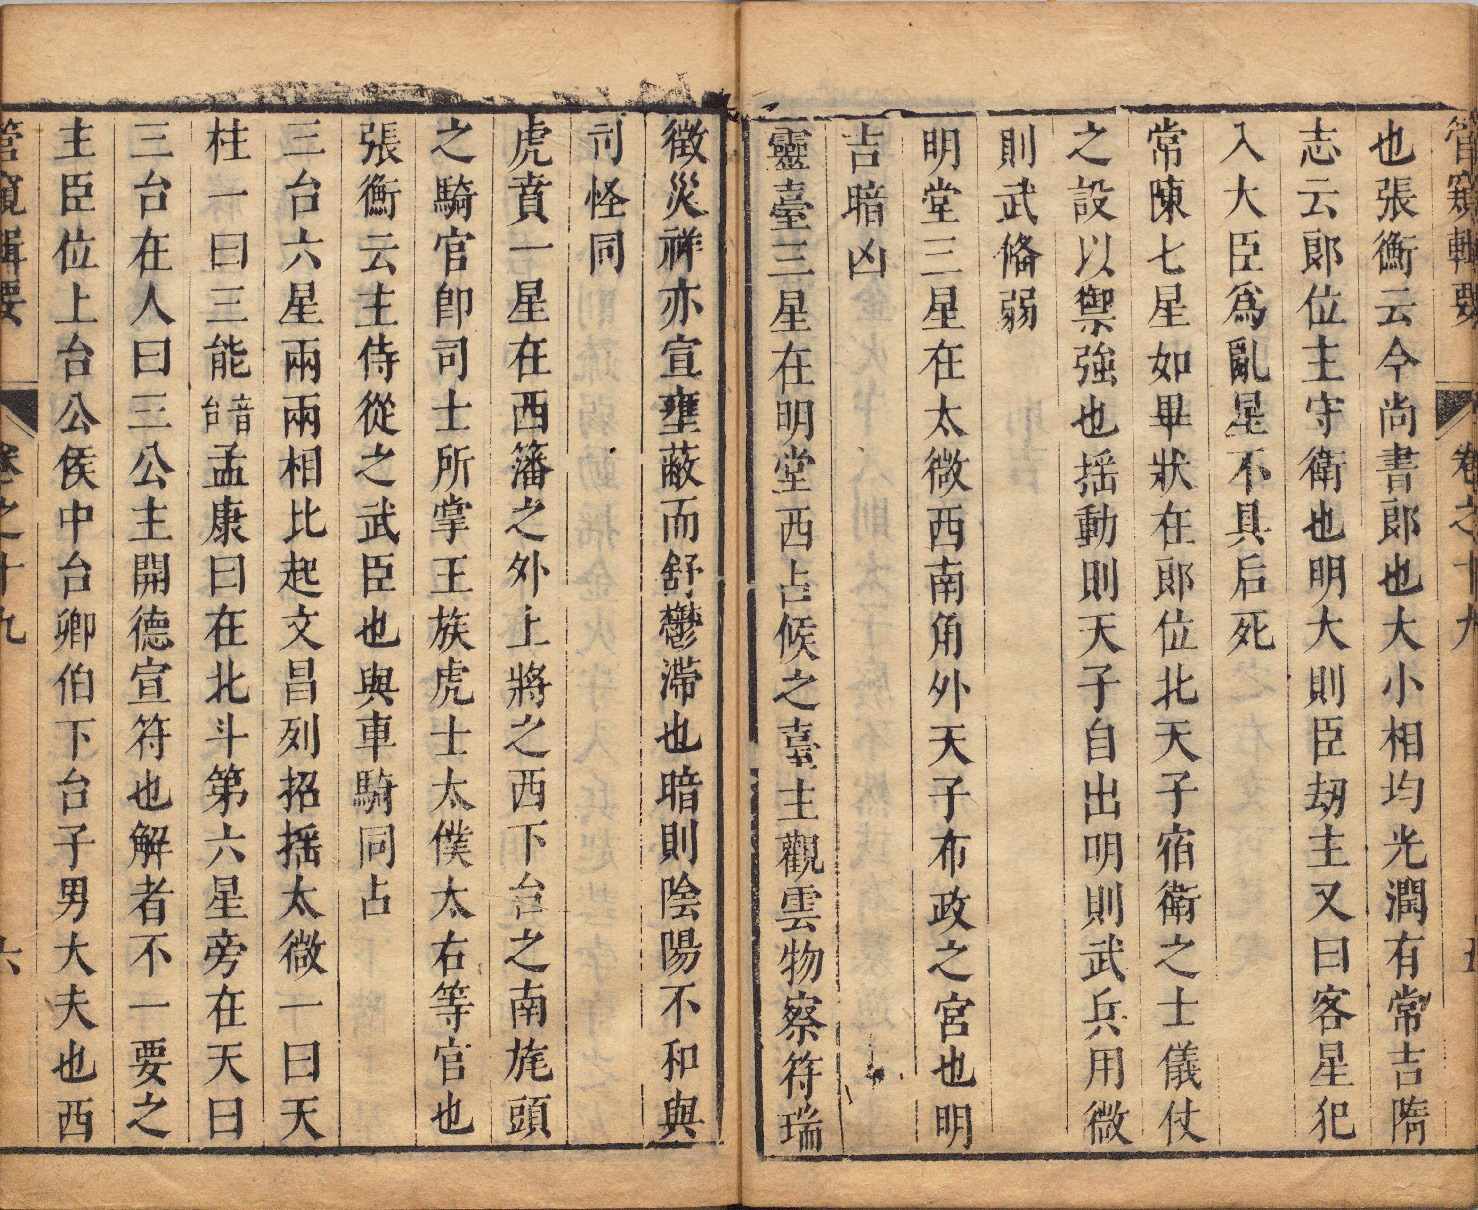 管窺輯要 卷之十九 五
也張衡云今尚書郎也大小相均光潤有常吉隋
志云郎位主守衛也明大則臣刼主又曰客星犯
入大臣爲亂星不具后死
常陳七星如畢狀在郎位北天子宿衛之士儀仗
之設以禦強也揺動則天子自出明則武兵用微
則武俻弱
明堂三星在太微西南角外天子布政之宮也明
吉暗凶
靈臺三星在明堂西占候之臺主觀雲物察符瑞
徵災祥亦宣壅蔽而舒鬱滯也暗則陰陽不和與
司怪同
虎賁一星在西藩之外上將之西下台之南旄頭
之騎官卽司士所掌王族虎士太僕太右等官也
張衡云主侍從之武臣也與車騎同占
三台六星兩兩相比起文昌列招揺太微一曰天
柱一曰三能音台孟康曰在北斗第六星旁在天曰
三台在人曰三公主開德宣符也解者不一要之
主臣位上台公侯中台卿伯下台子男大夫也西
管窺輯要 卷之十九 六